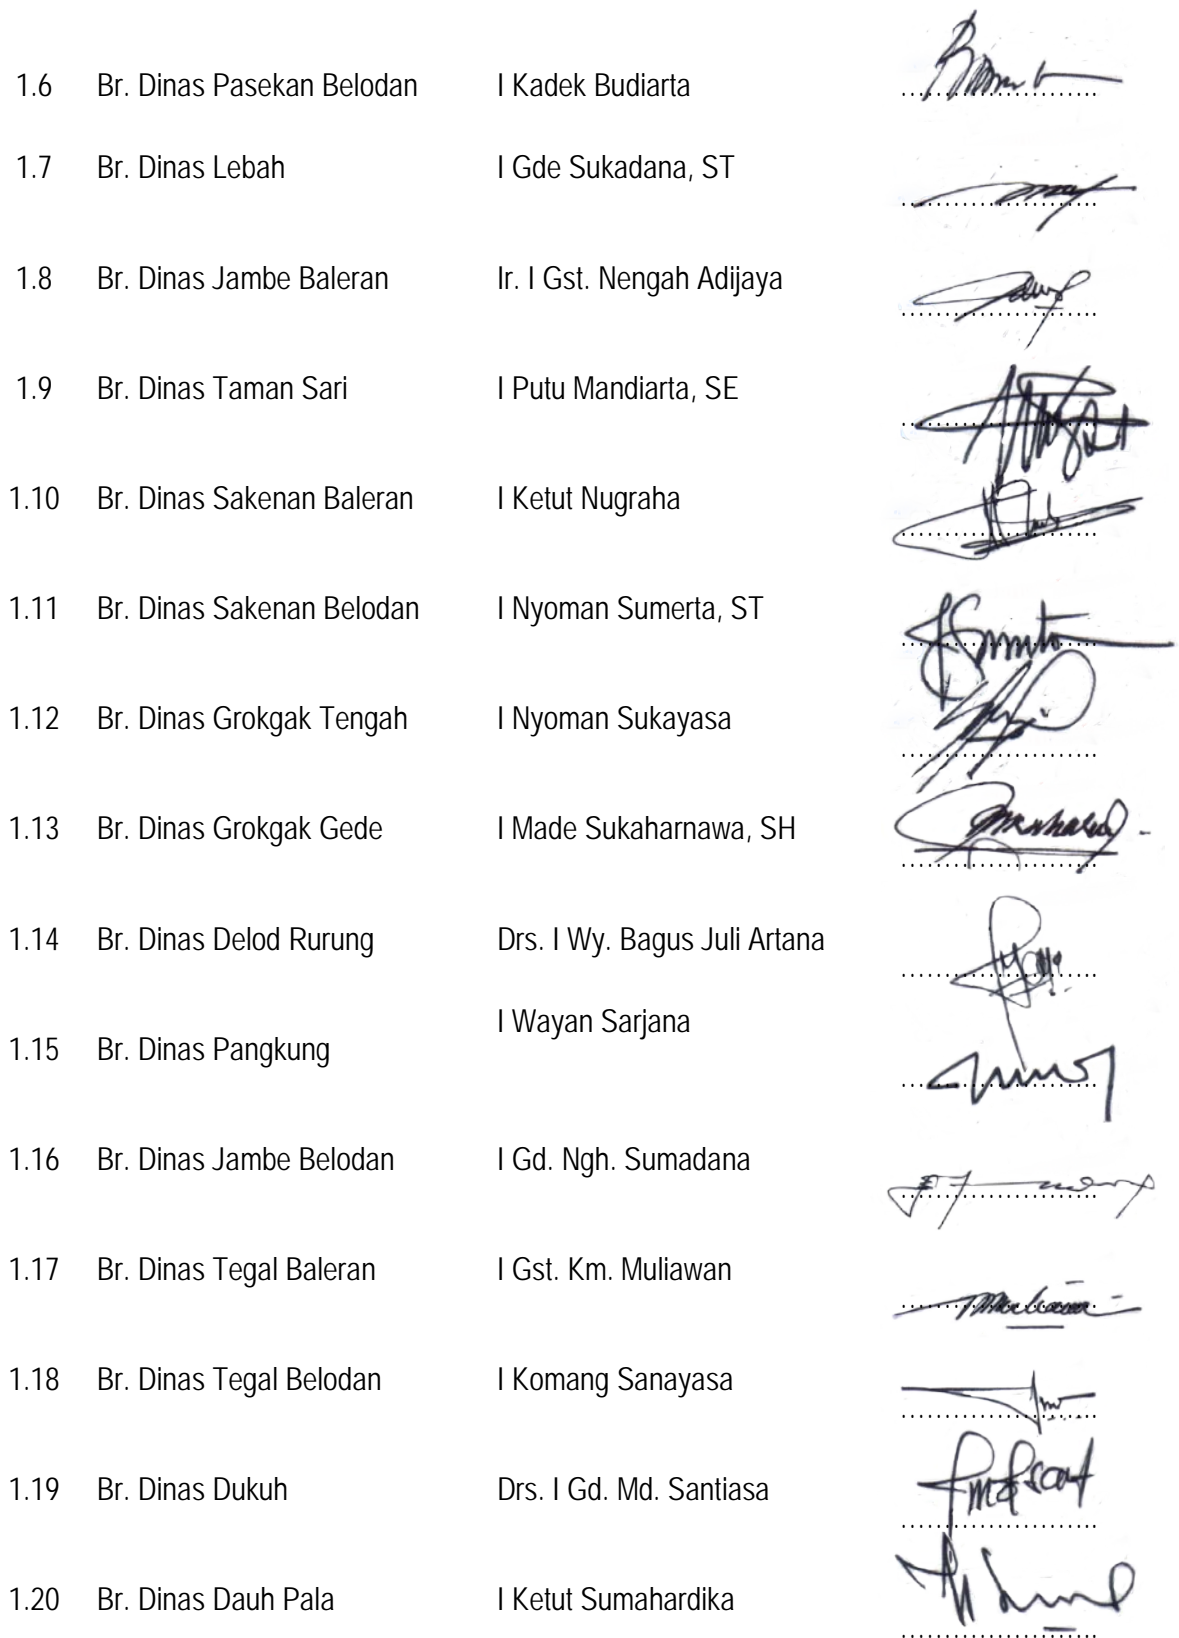 1.6 Br. Dinas Pasekan Belodan I Kadek Budiarta ......................
1.7 Br. Dinas Lebah I Gde Sukadana, ST ......................
1.8 Br. Dinas Jambe Baleran Ir. I Gst. Nengah Adijaya ......................
1.9 Br. Dinas Taman Sari I Putu Mandiarta, SE ......................
1.10 Br. Dinas Sakenan Baleran I Ketut Nugraha ......................
1.11 Br. Dinas Sakenan Belodan I Nyoman Sumerta, ST ......................
1.12 Br. Dinas Grokgak Tengah I Nyoman Sukayasa ......................
1.13 Br. Dinas Grokgak Gede I Made Sukaharnawa, SH ......................
1.14 Br. Dinas Delod Rurung Drs. I Wy. Bagus Juli Artana ......................
1.15 Br. Dinas Pangkung I Wayan Sarjana ......................
1.16 Br. Dinas Jambe Belodan I Gd. Ngh. Sumadana ......................
1.17 Br. Dinas Tegal Baleran I Gst. Km. Muliawan ......................
1.18 Br. Dinas Tegal Belodan I Komang Sanayasa ......................
1.19 Br. Dinas Dukuh Drs. I Gd. Md. Santiasa ......................
1.20 Br. Dinas Dauh Pala I Ketut Sumahardika ......................